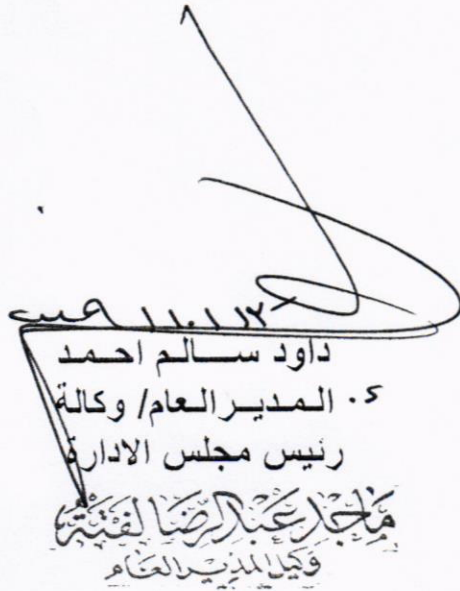 داود سالم احمد
المدير العام/ وكالة
رئيس مجلس الادارة
ماجد عبد الرضا لفتة
وكيل المدير العام